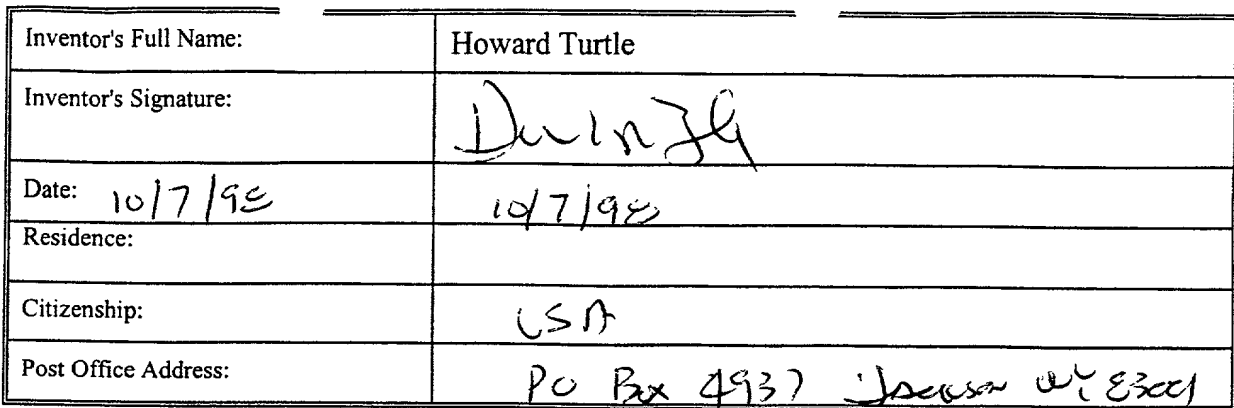 Inventor's Full Name: Howard Turtle
Inventor's Signature:
Date: 10/7/98 10/7/98
Residence:
Citizenship: USA
Post Office Address: PO Box 4937 Jackson WY 83001